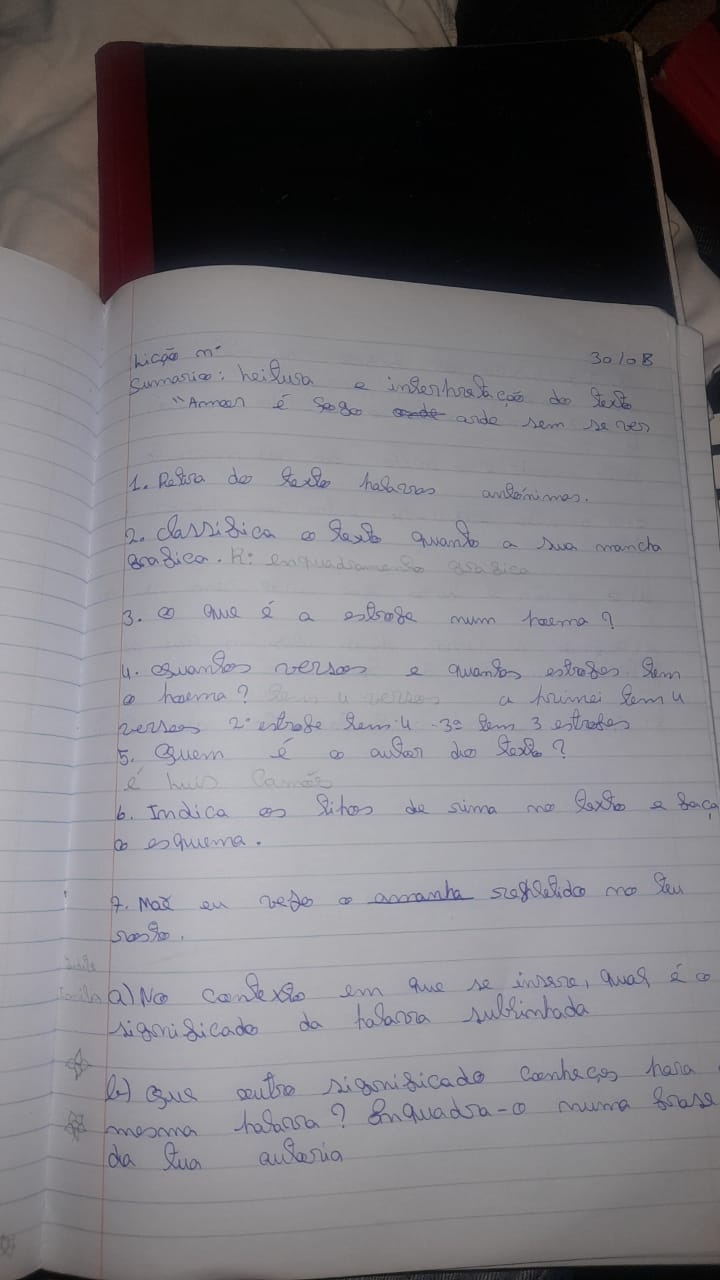 Lição nº 30/08
Sumario: Leitura e interpretação do texto
"Amor é fogo arde sem se ver
1. Retira do texto palavras antónimas.
2. Classifica o texto quanto a sua mancha
grafica. R: enquadramento grafico
3. O que é a estrofe num poema?
4. Quantos versos e quantos estrofes tem
o poema? tem 4 versos a primei tem 4
versos 2ª estrofe tem 4 3ª tem 3 estrofes
5. Quem é o autor do texto?
é Luis Camões
6. Indica os tipos de rima no texto e faça
o esquema.
7. Mãe eu vejo o amanha refletido no teu
rosto.
a) No contexto em que se insere, qual é o
significado da palavra sublinhada
b) Que outro significado conheces para
mesma palavra? Enquadra-o numa frase
da tua autoria